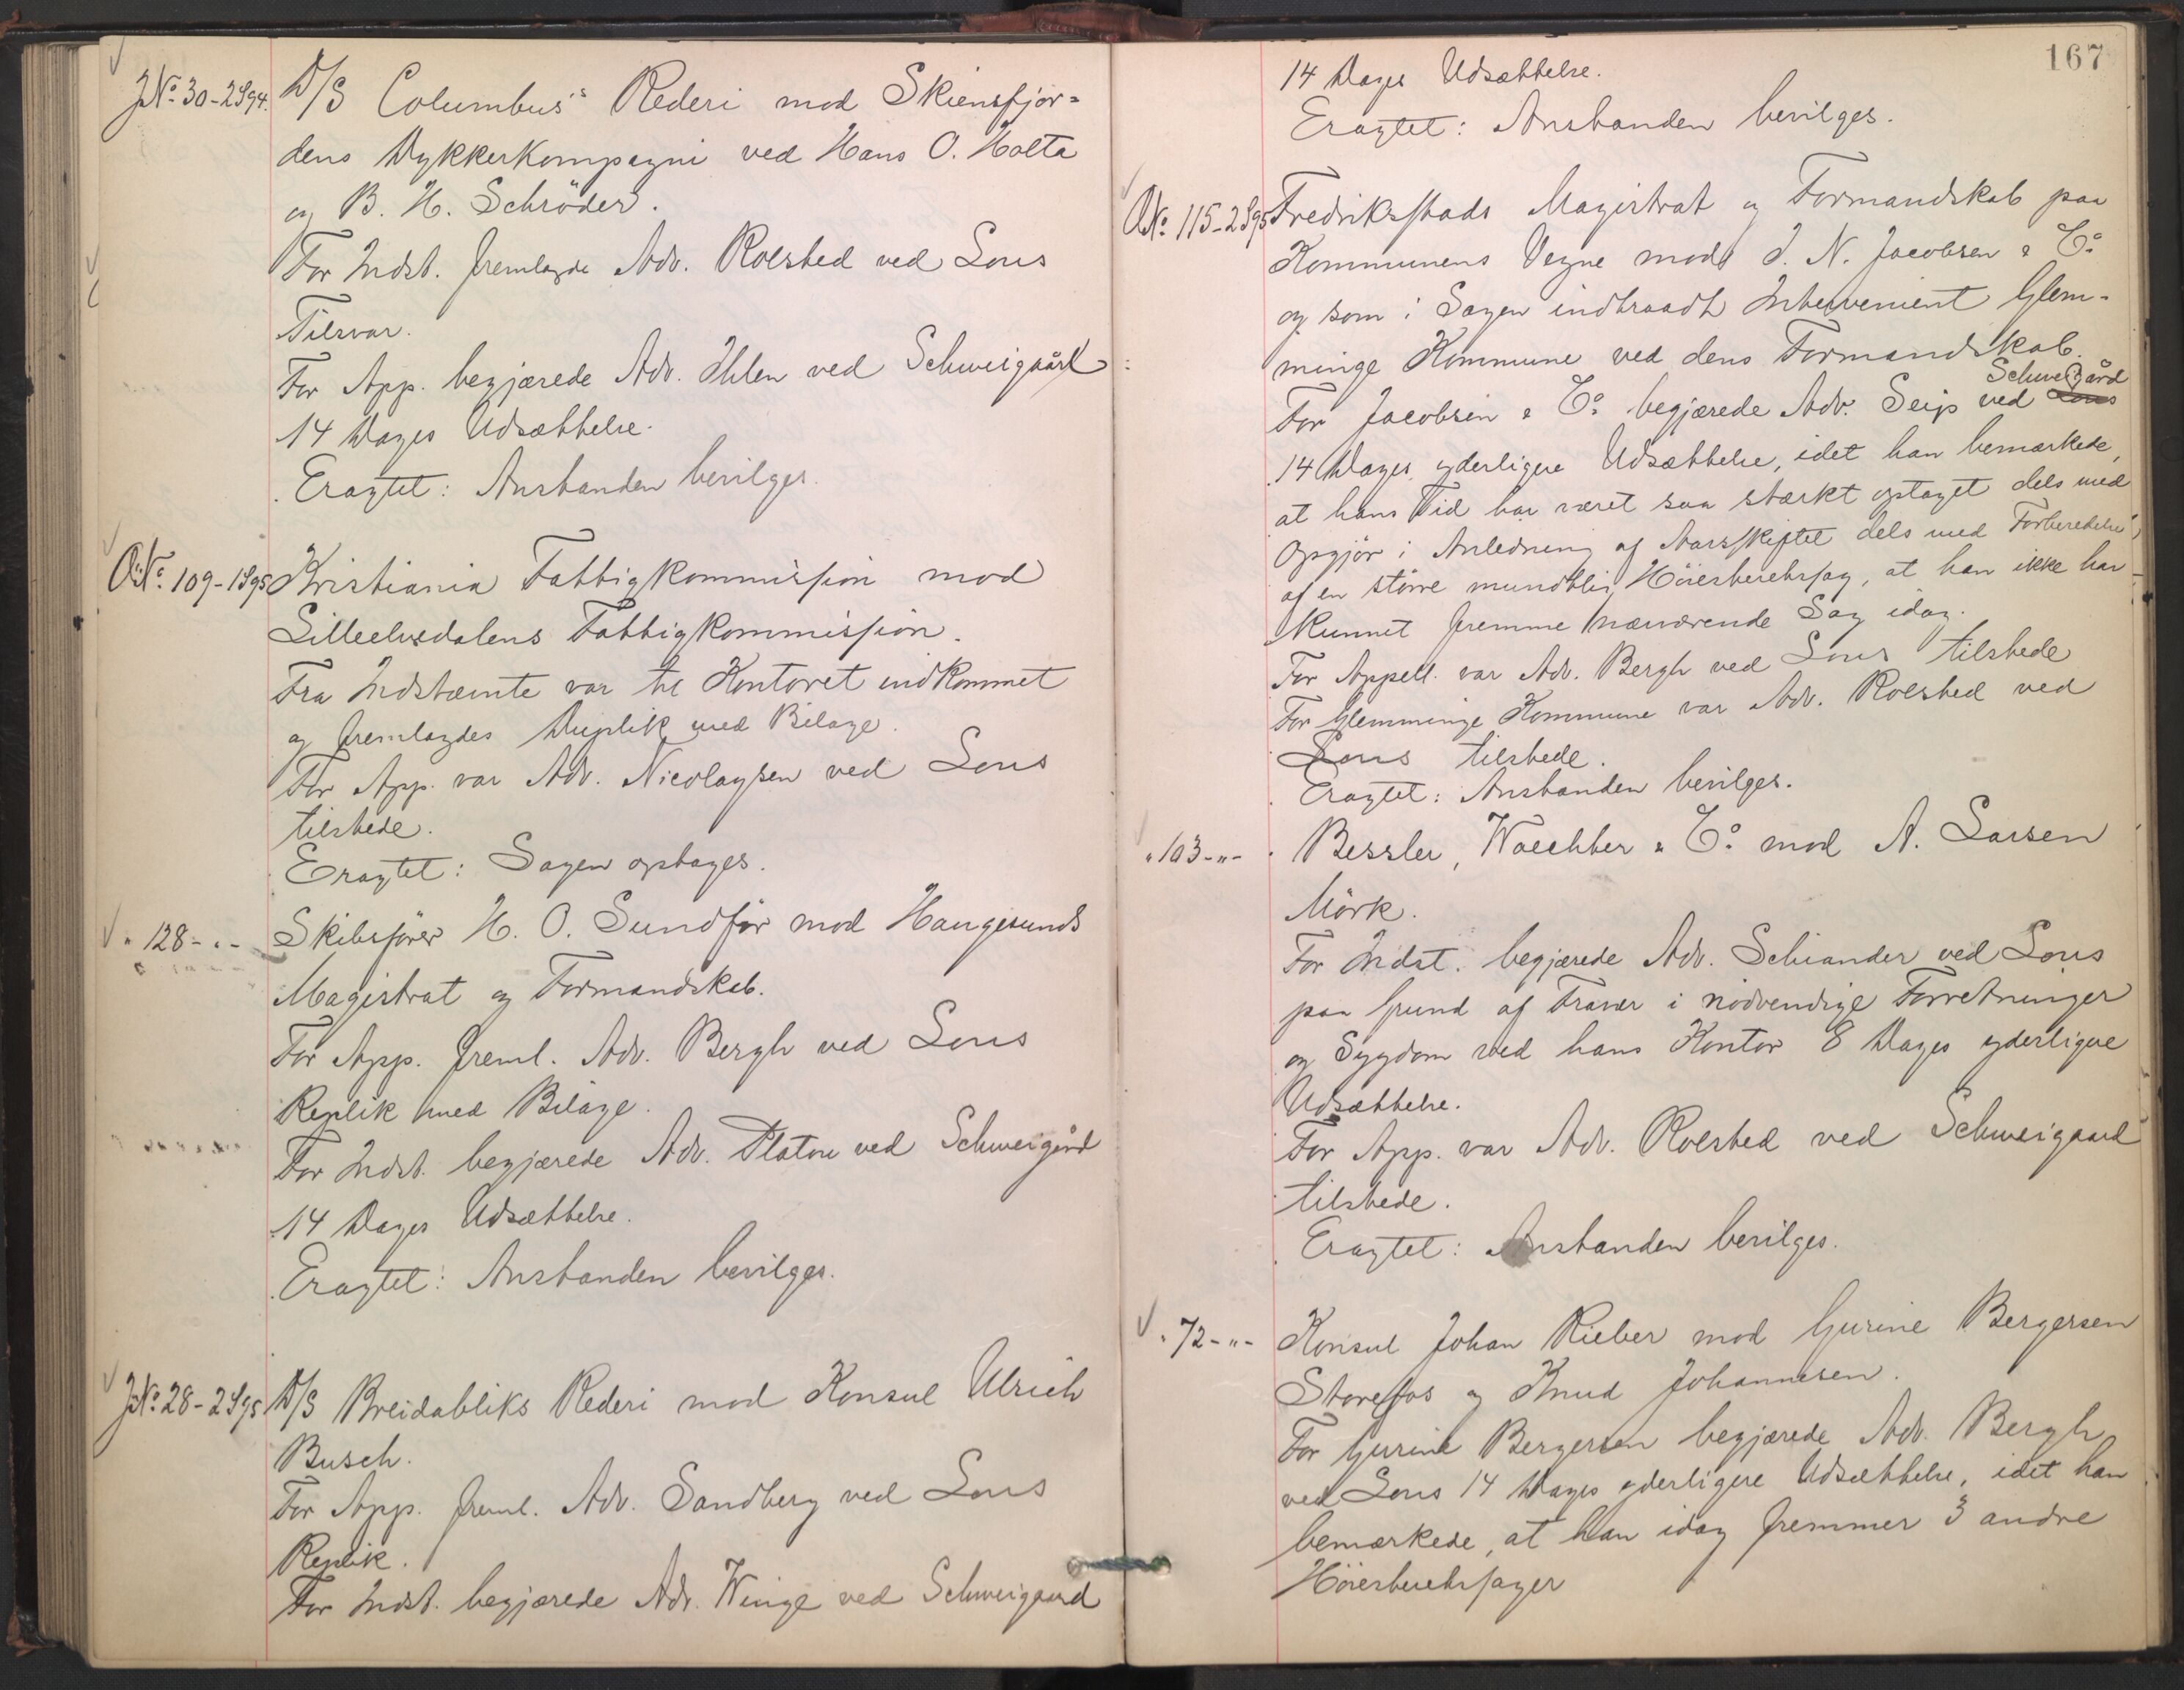 JNo. 30-2S94. D/S Columbus's Rederi mod Skiensfjor=
dens Dykkerkompagni ved Hans O. Holta
og B. H. Schröder.
For Indst. fremlagde Adv. Rolsted ved Lous
Tilsvar.
For App. begjærede Adv. Ihlen ved Schweigaard
14 Dages Udsættelse.
Eragtet: Anstanden bevilges.
ONo. 109-1S95 Kristiania Fattigkommission mod
Lilleelvedalens Fattigkommission.
Fra Indstævnte var til Kontoret indkommet
og fremlagdes Duplik med Bilage.
For App. var Adv. Nicolaysen ved Lous
tilstede.
Eragtet: Sagen optages.
" 128-"- Skibsfører H. O. Sundför mod Haugesunds
Magistrat og Formandskab.
For App. freml. Adv. Bergh ved Lous
Replik med Bilage.
For Indst. begjærede Adv. Platou ved Schweigård
14 Dages Udsættelse.
Eragtet: Anstanden bevilges.
JNo. 28-2S95 D/S Breidabliks Rederi mod Konsul Ulrich
Busch.
For App. freml. Adv. Sandberg ved Lous
Replik.
For Indst. begjærede Adv. Winge ved Schweigaard
167
14 Dages Udsættelse.
Eragtet: Anstanden bevilges.
ONo. 115-2S95 Fredriksstads Magistrat og Formandskab paa
Kommunens Vegne mod J. N. Jacobsen & Co.
og som i Sagen indtraadt Intervenient Glem-
minge Kommune ved dens Formandskab.
Schweigård
For Jacobsen & Co. begjærede Adv. Seip ved Lous
14 Dages yderligere Udsættelse, idet han bemærkede,
at hans Tid har været saa stærkt optaget dels med
Opgjör i Anledning af Aarsskiftet dels med Forberedelse
af en större mundtlig Höiesteretssag, at han ikke har
kunnet fremme nærværende Sag idag.
For Appell. var Adv. Bergh ved Lous tilstede
For Glemminge Kommune var Adv. Rolsted ved
Lous tilstede.
Eragtet: Anstanden bevilges.
" 103-"- Bessler, Waechter & Co. mod A. Larsen
Mörk.
For Indst. begjærede Adv. Schiander ved Lous
paa Grund af Fravær i nödvendige Forretninger
og Sygdom ved hans Kontor 8 Dages yderligere
Udsættelse.
For App. var Adv. Rolsted ved Schweigaard
tilstede.
Eragtet: Anstanden bevilges.
" 72-"- Konsul Johan Rieber mod Gurine Bergersen
Storefos og Knud Johannesen.
For Gurine Bergersen begjærede Adv. Bergh
ved Lous 14 Dages yderligere Udsættelse, idet han
bemærkede, at han idag fremmer 3 andre
Höiesteretssager